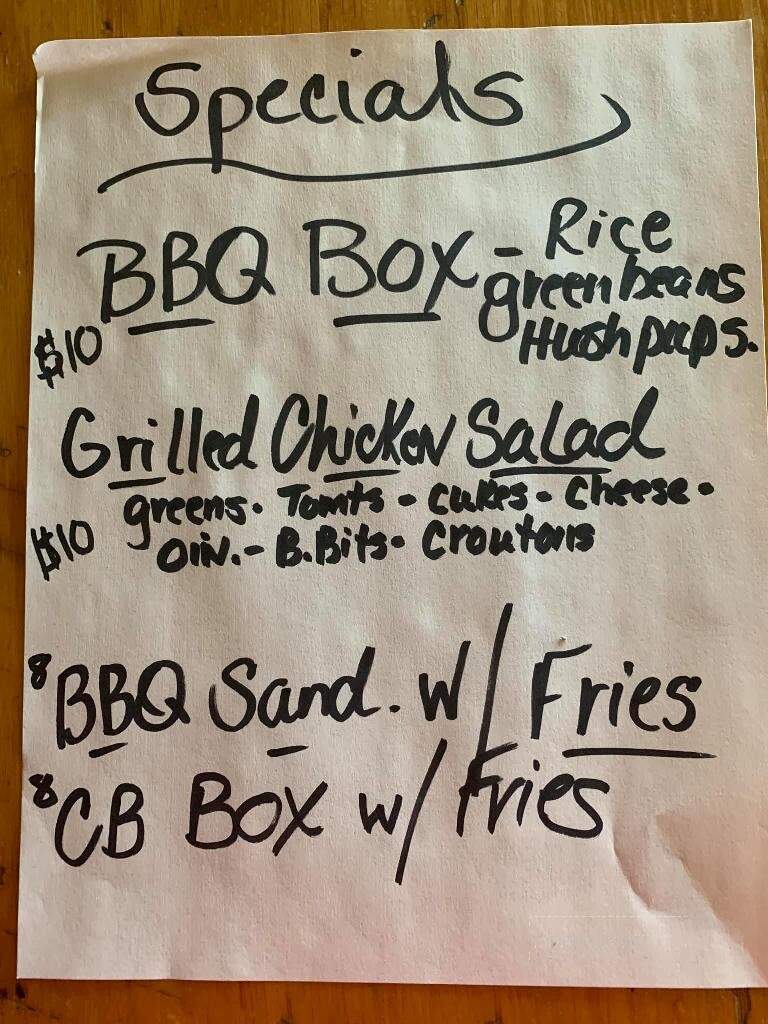 Specials
BBQ Box - Rice
green beans
$10 Hushpups.
Grilled Chicken Salad
greens. Tomts - Cukes - Cheese -
$10 Oin. - B.Bits - Croutons
8 BBQ Sand. w/ Fries
8 CB Box w/ Fries